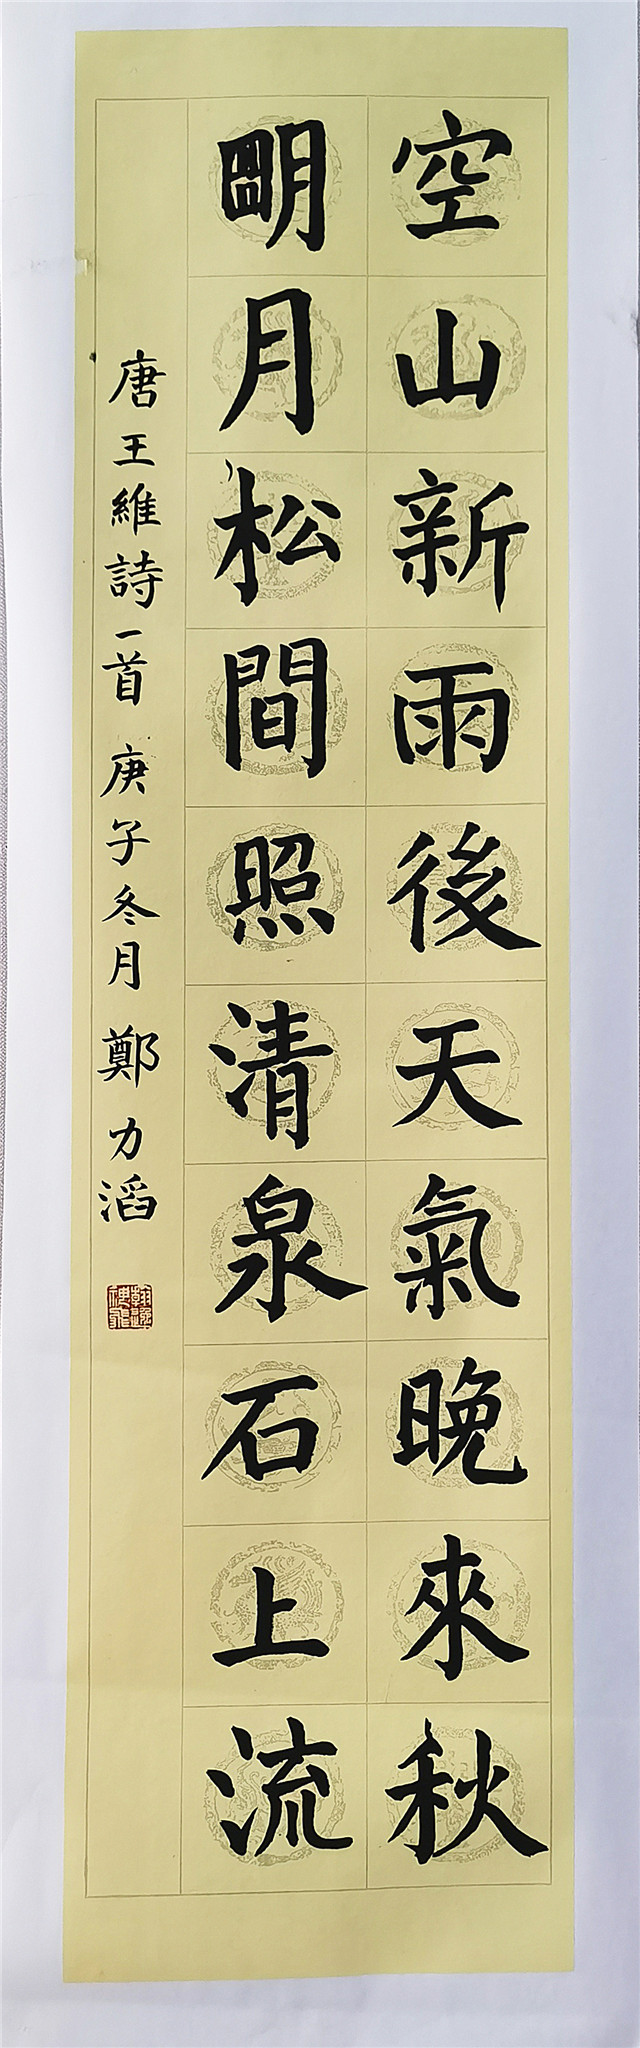 空山新雨後天氣晚來秋
明月松間照清泉石上流
唐王維詩一首 庚子冬月 鄭力滔